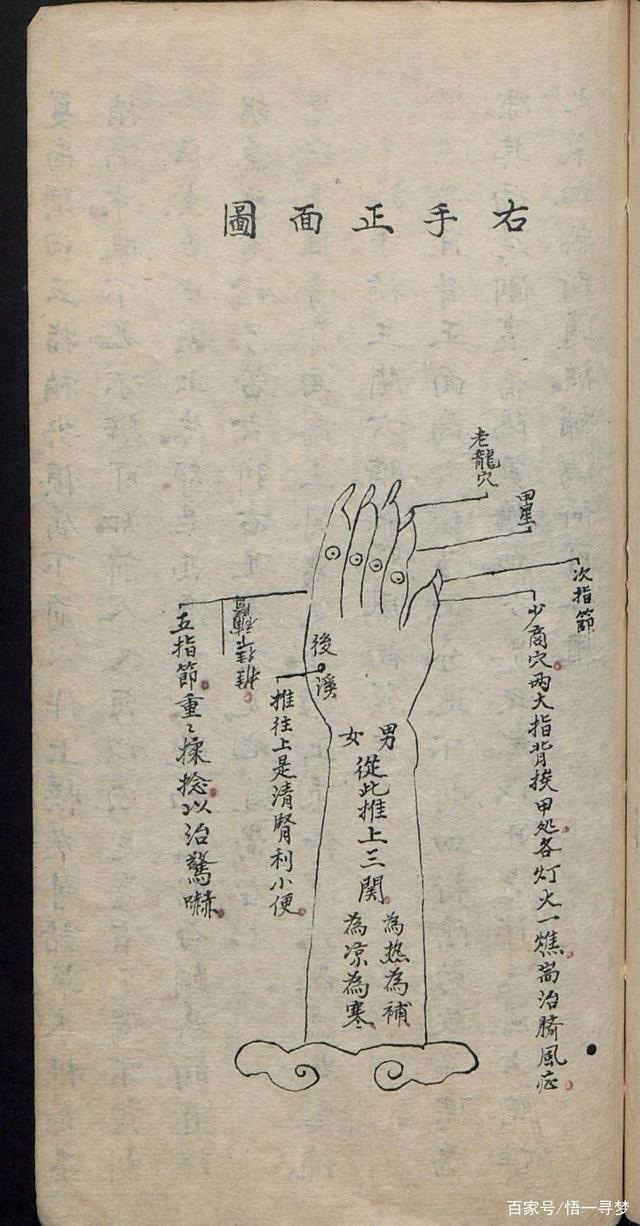 右手正面圖
老龍穴
甲星
次指節
少商穴两大指背挨甲处各灯火一燋耑治臍風症
男
女
從此推上三関
為热為補
為凉為寒
後溪
推往上是清腎利小便
五指節重〻揉捻以治驚嚇
百家号/悟一寻梦